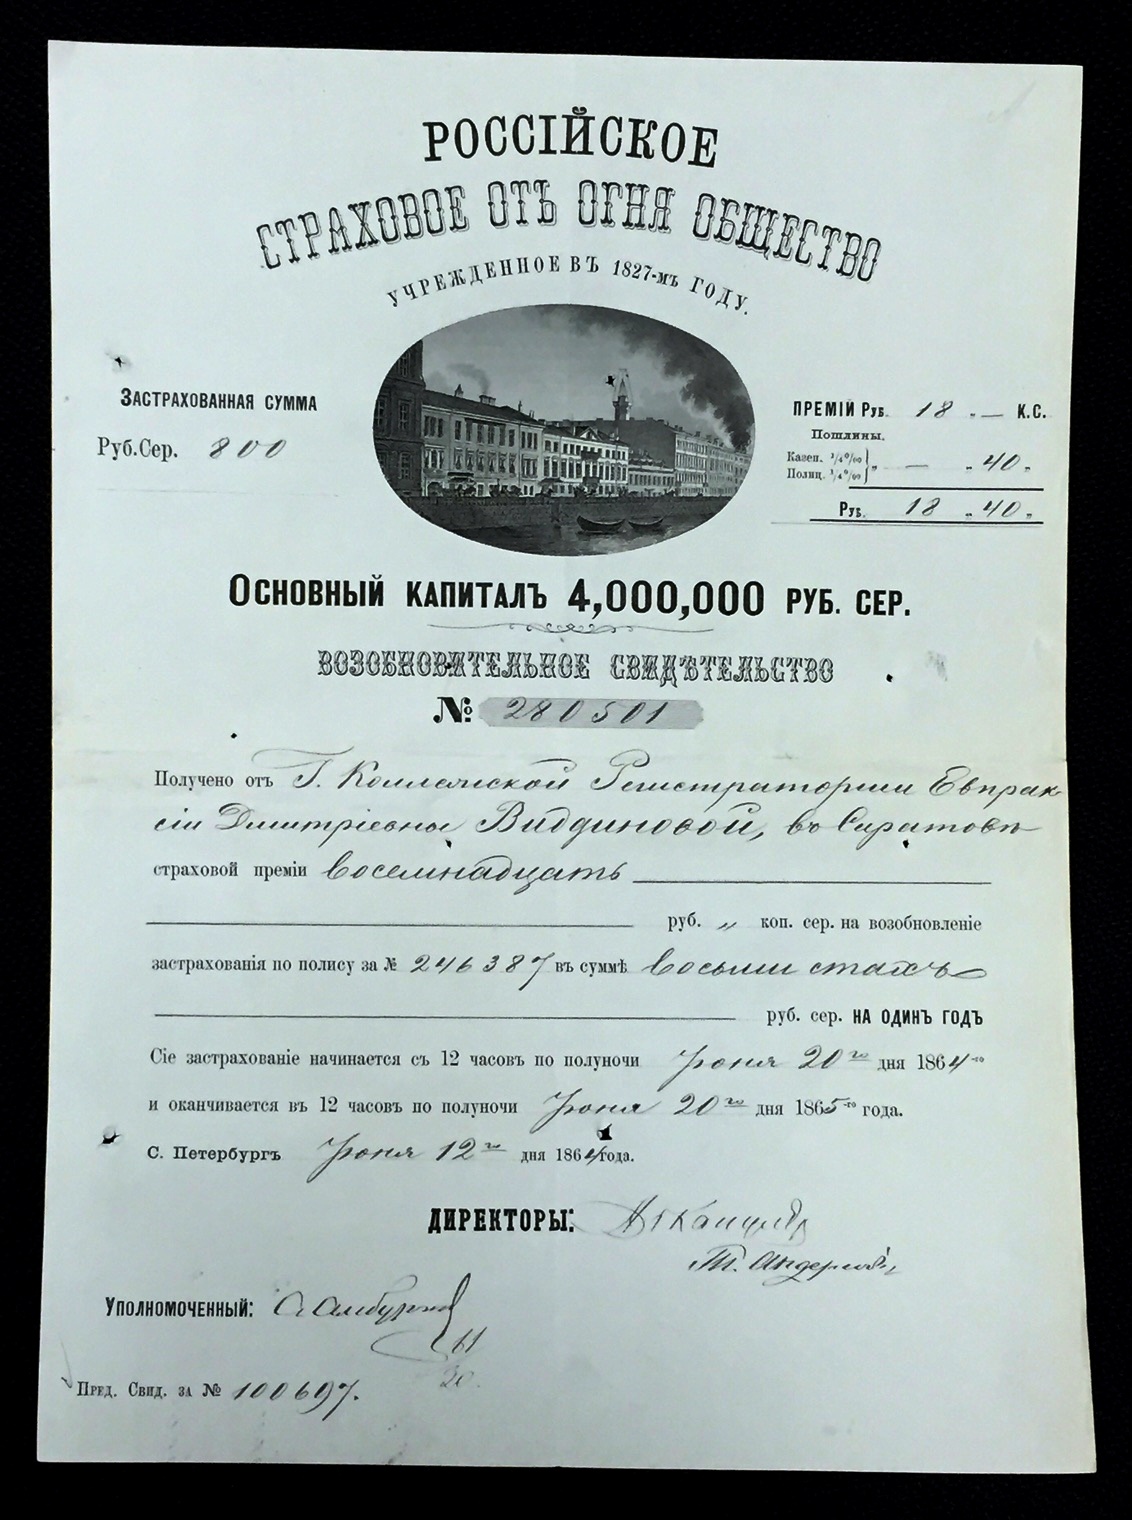 РОССІЙСКОЕ
СТРАХОВОЕ ОТЪ ОГНЯ ОБЩЕСТВО
УЧРЕЖДЕННОЕ ВЪ 1827-мъ ГОДУ.
ЗАСТРАХОВАННАЯ СУММА
Руб.Сер. 800
ПРЕМІИ РУБ. 18 „ — К.С.
Пошлины.
Казен. ¼ ‰
Полиц. ¼ ‰ } „ — „ 40 „
РУБ. 18 „ 40 „
ОСНОВНЫЙ КАПИТАЛЪ 4,000,000 РУБ. СЕР.
ВОЗОБНОВИТЕЛЬНОЕ СВИДѢТЕЛЬСТВО
№ 280501
Получено отъ Г. Коллежской Регистраторши Евпрак-
сіи Дмитріевны Виддиновой, въ Саратовѣ
страховой преміи восемнадцать
руб. „ коп. сер. на возобновленіе
застрахованія по полису за № 246387 въ суммѣ восьми стахъ
руб. сер. НА ОДИНЪ ГОДЪ
Сіе застрахованіе начинается съ 12 часовъ по полуночи Іюня 20го дня 1864-го
и оканчивается въ 12 часовъ по полуночи Іюня 20го дня 1865-го года.
С. Петербургъ Іюня 12го дня 1864 года.
ДИРЕКТОРЫ:
УПОЛНОМОЧЕННЫЙ:
61
20.
ПРЕД. СВИД. ЗА № 100697.